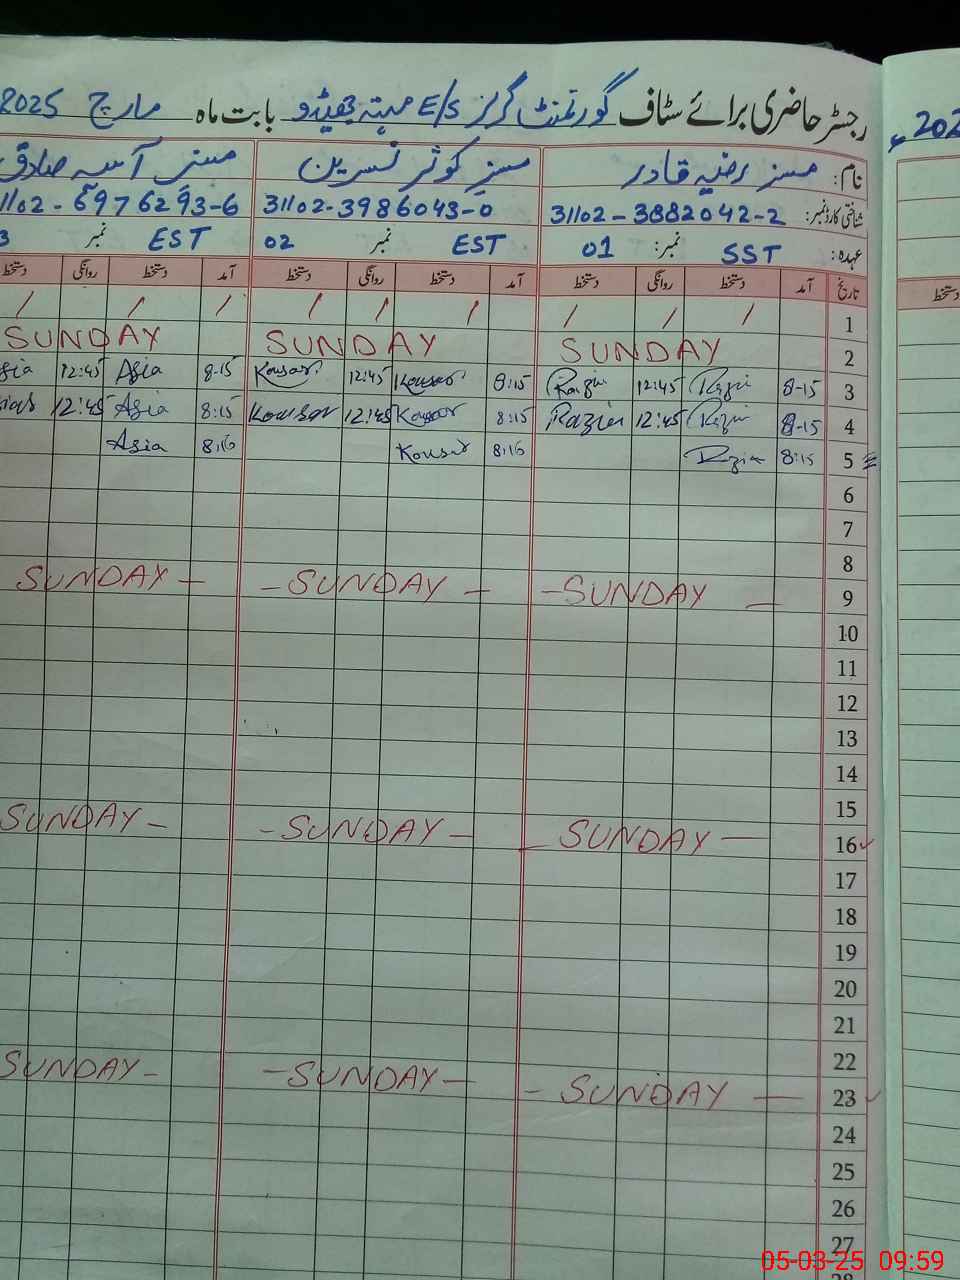 رجسٹر حاضری برائے سٹاف گورنمنٹ گرلز E/S میتہ جھیڈو بابت ماہ مارچ 2025ء
نام: مسز رضیہ قادر مسز کوثر نسرین مسز آسیہ صادق
شناختی کارڈ نمبر: 31102-3882042-2 31102-3986043-0 1102-6976293-6
عہدہ: SST نمبر: 01 EST نمبر 02 EST نمبر 3
تاریخ آمد دستخط روانگی دستخط آمد دستخط روانگی دستخط آمد دستخط روانگی دستخط
1 / / / / / / / / /
2 SUNDAY SUNDAY SUNDAY
3 8-15 Razia 12:45 Razia 8:15 Kousar 12:45 Kousar 8-15 Asia 12:45 sia
4 8-15 Razia 12:45 Razia 8:15 Kousar 12:45 Kousar 8:15 Asia 12:45
5 8:15 Razia 8:16 Kousar 8:16 Asia
6
7
8
9 -SUNDAY - -SUNDAY - SUNDAY -
10
11
12
13
14
15
16 - SUNDAY - -SUNDAY - SUNDAY -
17
18
19
20
21
22
23 - SUNDAY - -SUNDAY - SUNDAY -
24
25
26
27
28
202
دستخط
05-03-25 09:59